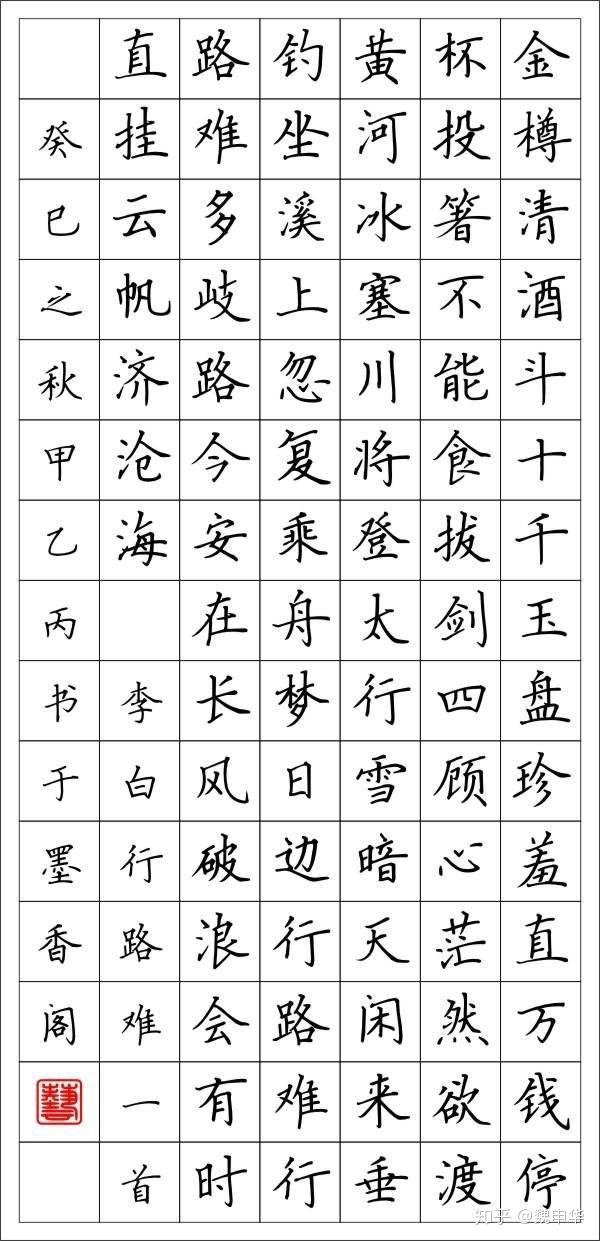 金樽清酒斗十千玉盘珍羞直万钱停
杯投箸不能食拔剑四顾心茫然欲渡
黄河冰塞川将登太行雪暗天闲来垂
钓坐溪上忽复乘舟梦日边行路难行
路难多歧路今安在长风破浪会有时
直挂云帆济沧海 李白行路难一首
癸巳之秋甲乙丙书于墨香阁 藝
知乎 @魏申华